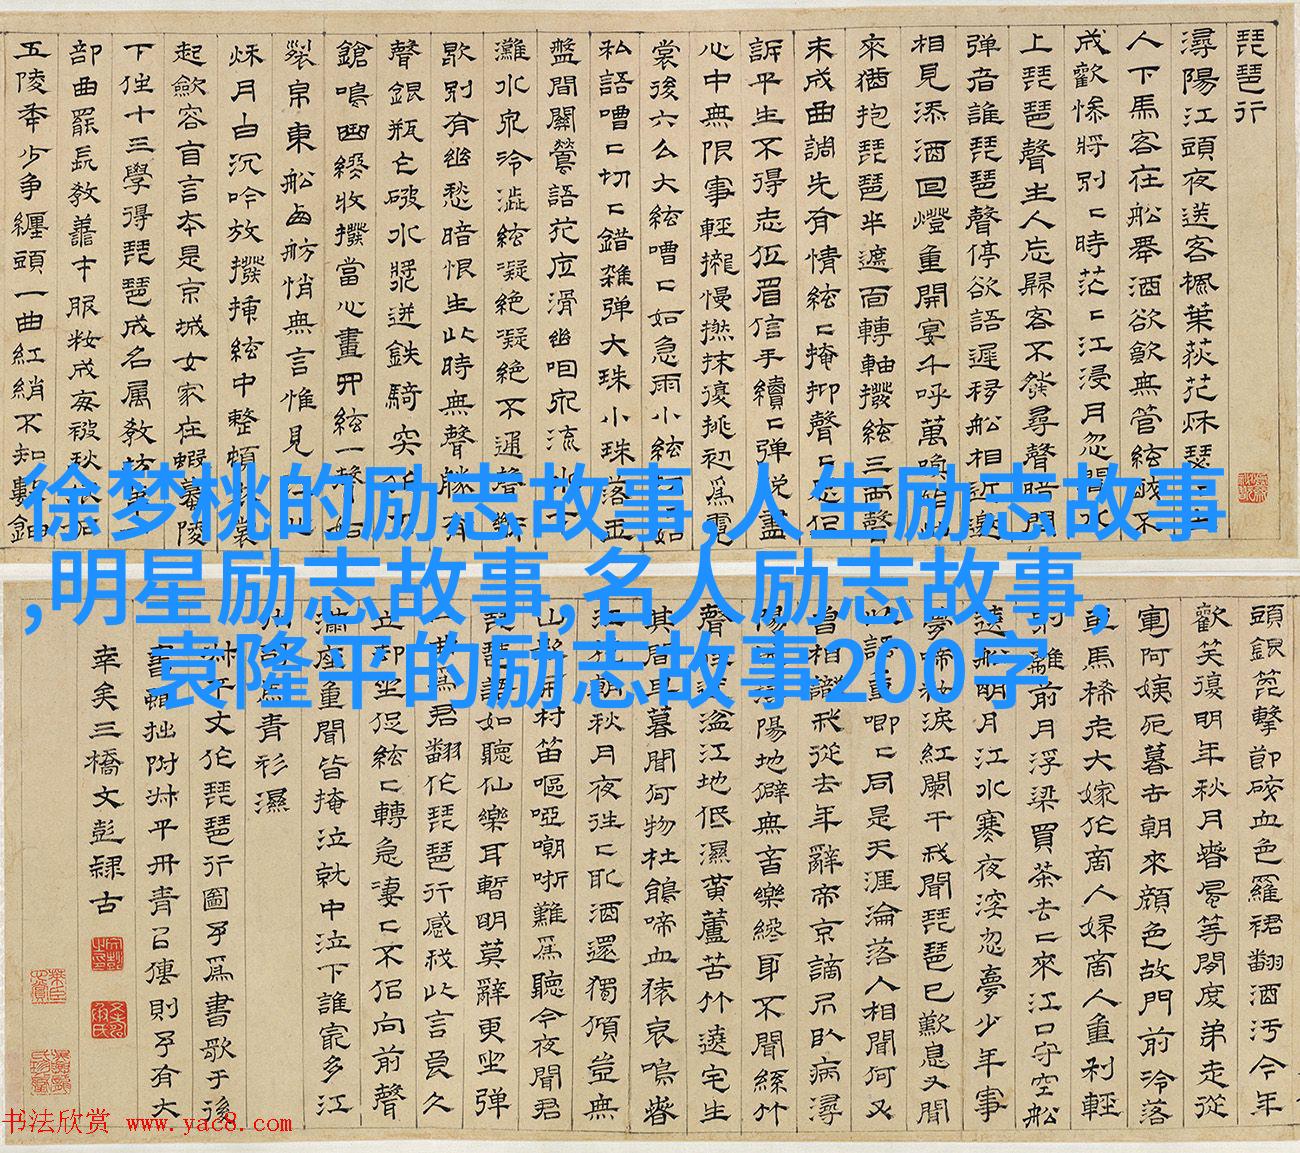 琵琶行
潯陽江頭夜送客楓葉荻花秌瑟
人下馬客在船舉酒欲飲無管絃醉不
成歡慘將別〻時茫〻江浸月忽聞水
上琵琶聲主人忘歸客不發尋聲暗問
彈者誰琵琶聲停欲語遲移船相近邀
相見添酒回燈重開宴千呼萬喚始出
來猶抱琵琶半遮面轉軸撥絃三兩聲
未成曲調先有情絃〻掩抑聲〻思似
訴平生不得志低眉信手續〻彈說盡
心中無限事輕攏慢撚抹復挑初爲霓
裳後六么大絃嘈〻如急雨小絃切〻如
私語嘈〻切〻錯雜彈大珠小珠落玉
盤間關鶯語花底滑幽咽泉流水下
灘水泉冷澁絃凝絕凝絕不通聲漸
歇別有幽愁暗恨生此時無聲勝有
聲銀瓶乍破水漿迸鉄騎突
鎗鳴曲終收撥當心畫四絃一聲如
裂帛東船西舫悄無言惟見
秌月白沉吟放撥插絃中整頓衣裳
起斂容自言本是京城女家在蝦蟇陵
下住十三學得琵琶成名属教坊第
部曲罷長教善才服妝成每被秋娘妬
五陵年少爭纏頭一曲紅綃不知數鈿
徐梦桃的励志故事,人生励志故事
,明星励志故事,名人励志故事,
袁隆平的励志故事200字
頭銀篦擊節碎血色羅裙翻酒污今年
歡笑復明年秋月春風等閒度弟走從
軍阿姨死暮去朝來顔色故門前冷落
車馬稀老大嫁作商人婦商人重利輕
別離前月浮梁買茶去〻來江口守空船
遶船明月江水寒夜深忽夢少年事
夢啼妝淚紅闌干我聞琵琶已歎息又聞
此語重唧〻同是天涯淪落人相聞何必
曾相識我從去年辭帝京謫居臥病潯
陽城潯陽地僻無音樂終歲不聞絲竹
聲住近湓江地低濕黄蘆苦竹遶宅生
其間旦暮聞何物杜鵑啼血猿哀鳴春
江花朝秋月夜往〻取酒還獨傾豈無
山歌與村笛嘔啞嘲哳難爲聽今夜聞君
琵琶語如聽仙樂耳暫明莫辭更坐彈
一曲爲君翻作琵琶行感我此言良久
立却坐促絃〻轉急凄〻不似向前聲
滿座重聞皆掩泣就中泣下誰最多江
州司馬青衫濕
子文作琵琶行圖予爲書歌于後
書頗拙附 平丹青以傳則予有大
幸矣三橋文彭隸古
书法欣赏 www.yac8.com